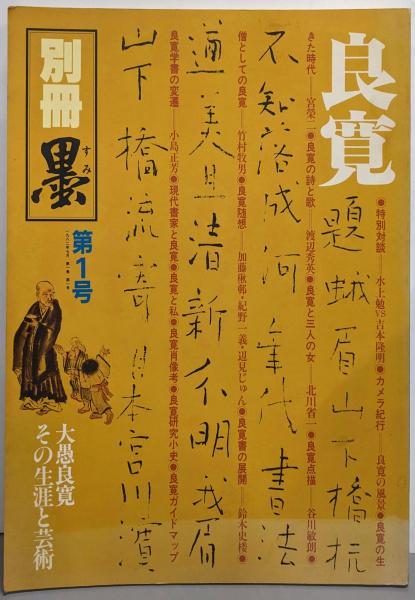 良寛
●特別対談——水上勉VS吉本隆明●カメラ紀行——良寛の風景●良寛の生
きた時代——宮榮二●良寛の詩と歌——渡辺秀英●良寛と三人の女——北川省一●良寛点描——谷川敏朗●
僧としての良寛——竹村牧男●良寛随想——加藤楸邨・紀野一義・辺見じゅん●良寛書の展開——鈴木史楼●
良寛学書の変遷——小島正芳●現代書家と良寛●良寛と私●良寛肖像考●良寛研究小史●良寛ガイドマップ
題蛾眉山下橋杭
不知落成何年代書法
遒美且清新分明我眉
山下橋流寄日本宮川濱
別冊
墨
すみ
第1号
大愚良寛
その生涯と芸術